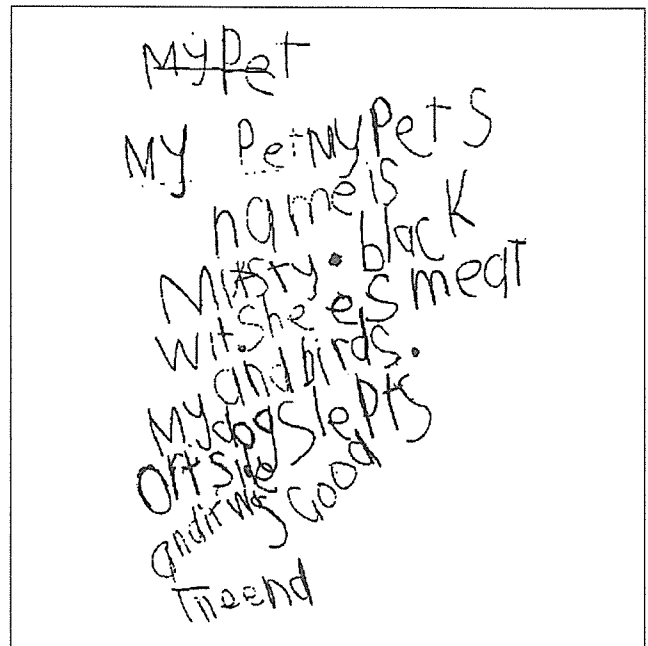 My Pet
My Pet My Pets
name is
Mitsty. black
wit. She es meat
and birds.
My dog slepts
ortside
and it was Good
The end